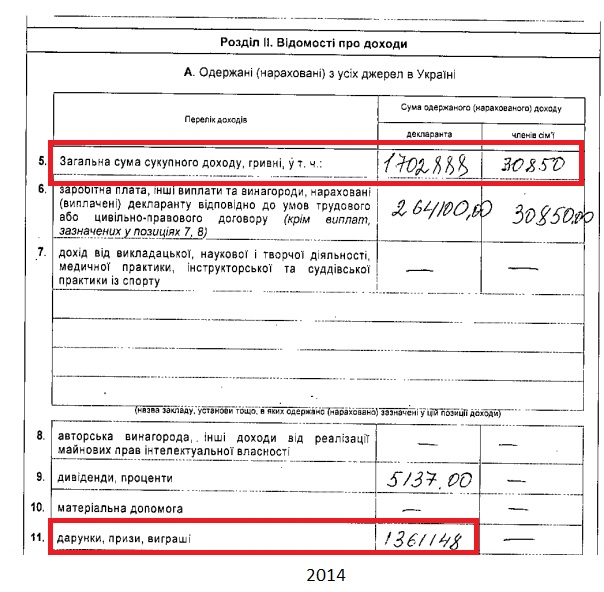 Розділ II. Відомості про доходи
А. Одержані (нараховані) з усіх джерел в Україні
Перелік доходів
Сума одержаного (нарахованого) доходу
декларанта
членів сім'ї
5. Загальна сума сукупного доходу, гривні, у т. ч.: 1702888 30850
6. заробітна плата, інші виплати та винагороди, нараховані
(виплачені) декларанту відповідно до умов трудового
або цивільно-правового договору (крім виплат,
зазначених у позиціях 7, 8) 264100,00 30850,00
7. дохід від викладацької, наукової і творчої діяльності,
медичної практики, інструкторської та суддівської
практики із спорту — —
(назва закладу, установи тощо, в яких одержано (нараховано) зазначені у цій позиції доходи)
8. авторська винагорода, інші доходи від реалізації
майнових прав інтелектуальної власності — —
9. дивіденди, проценти 5137.00 —
10. матеріальна допомога — —
11. дарунки, призи, виграші 1361148 —
2014